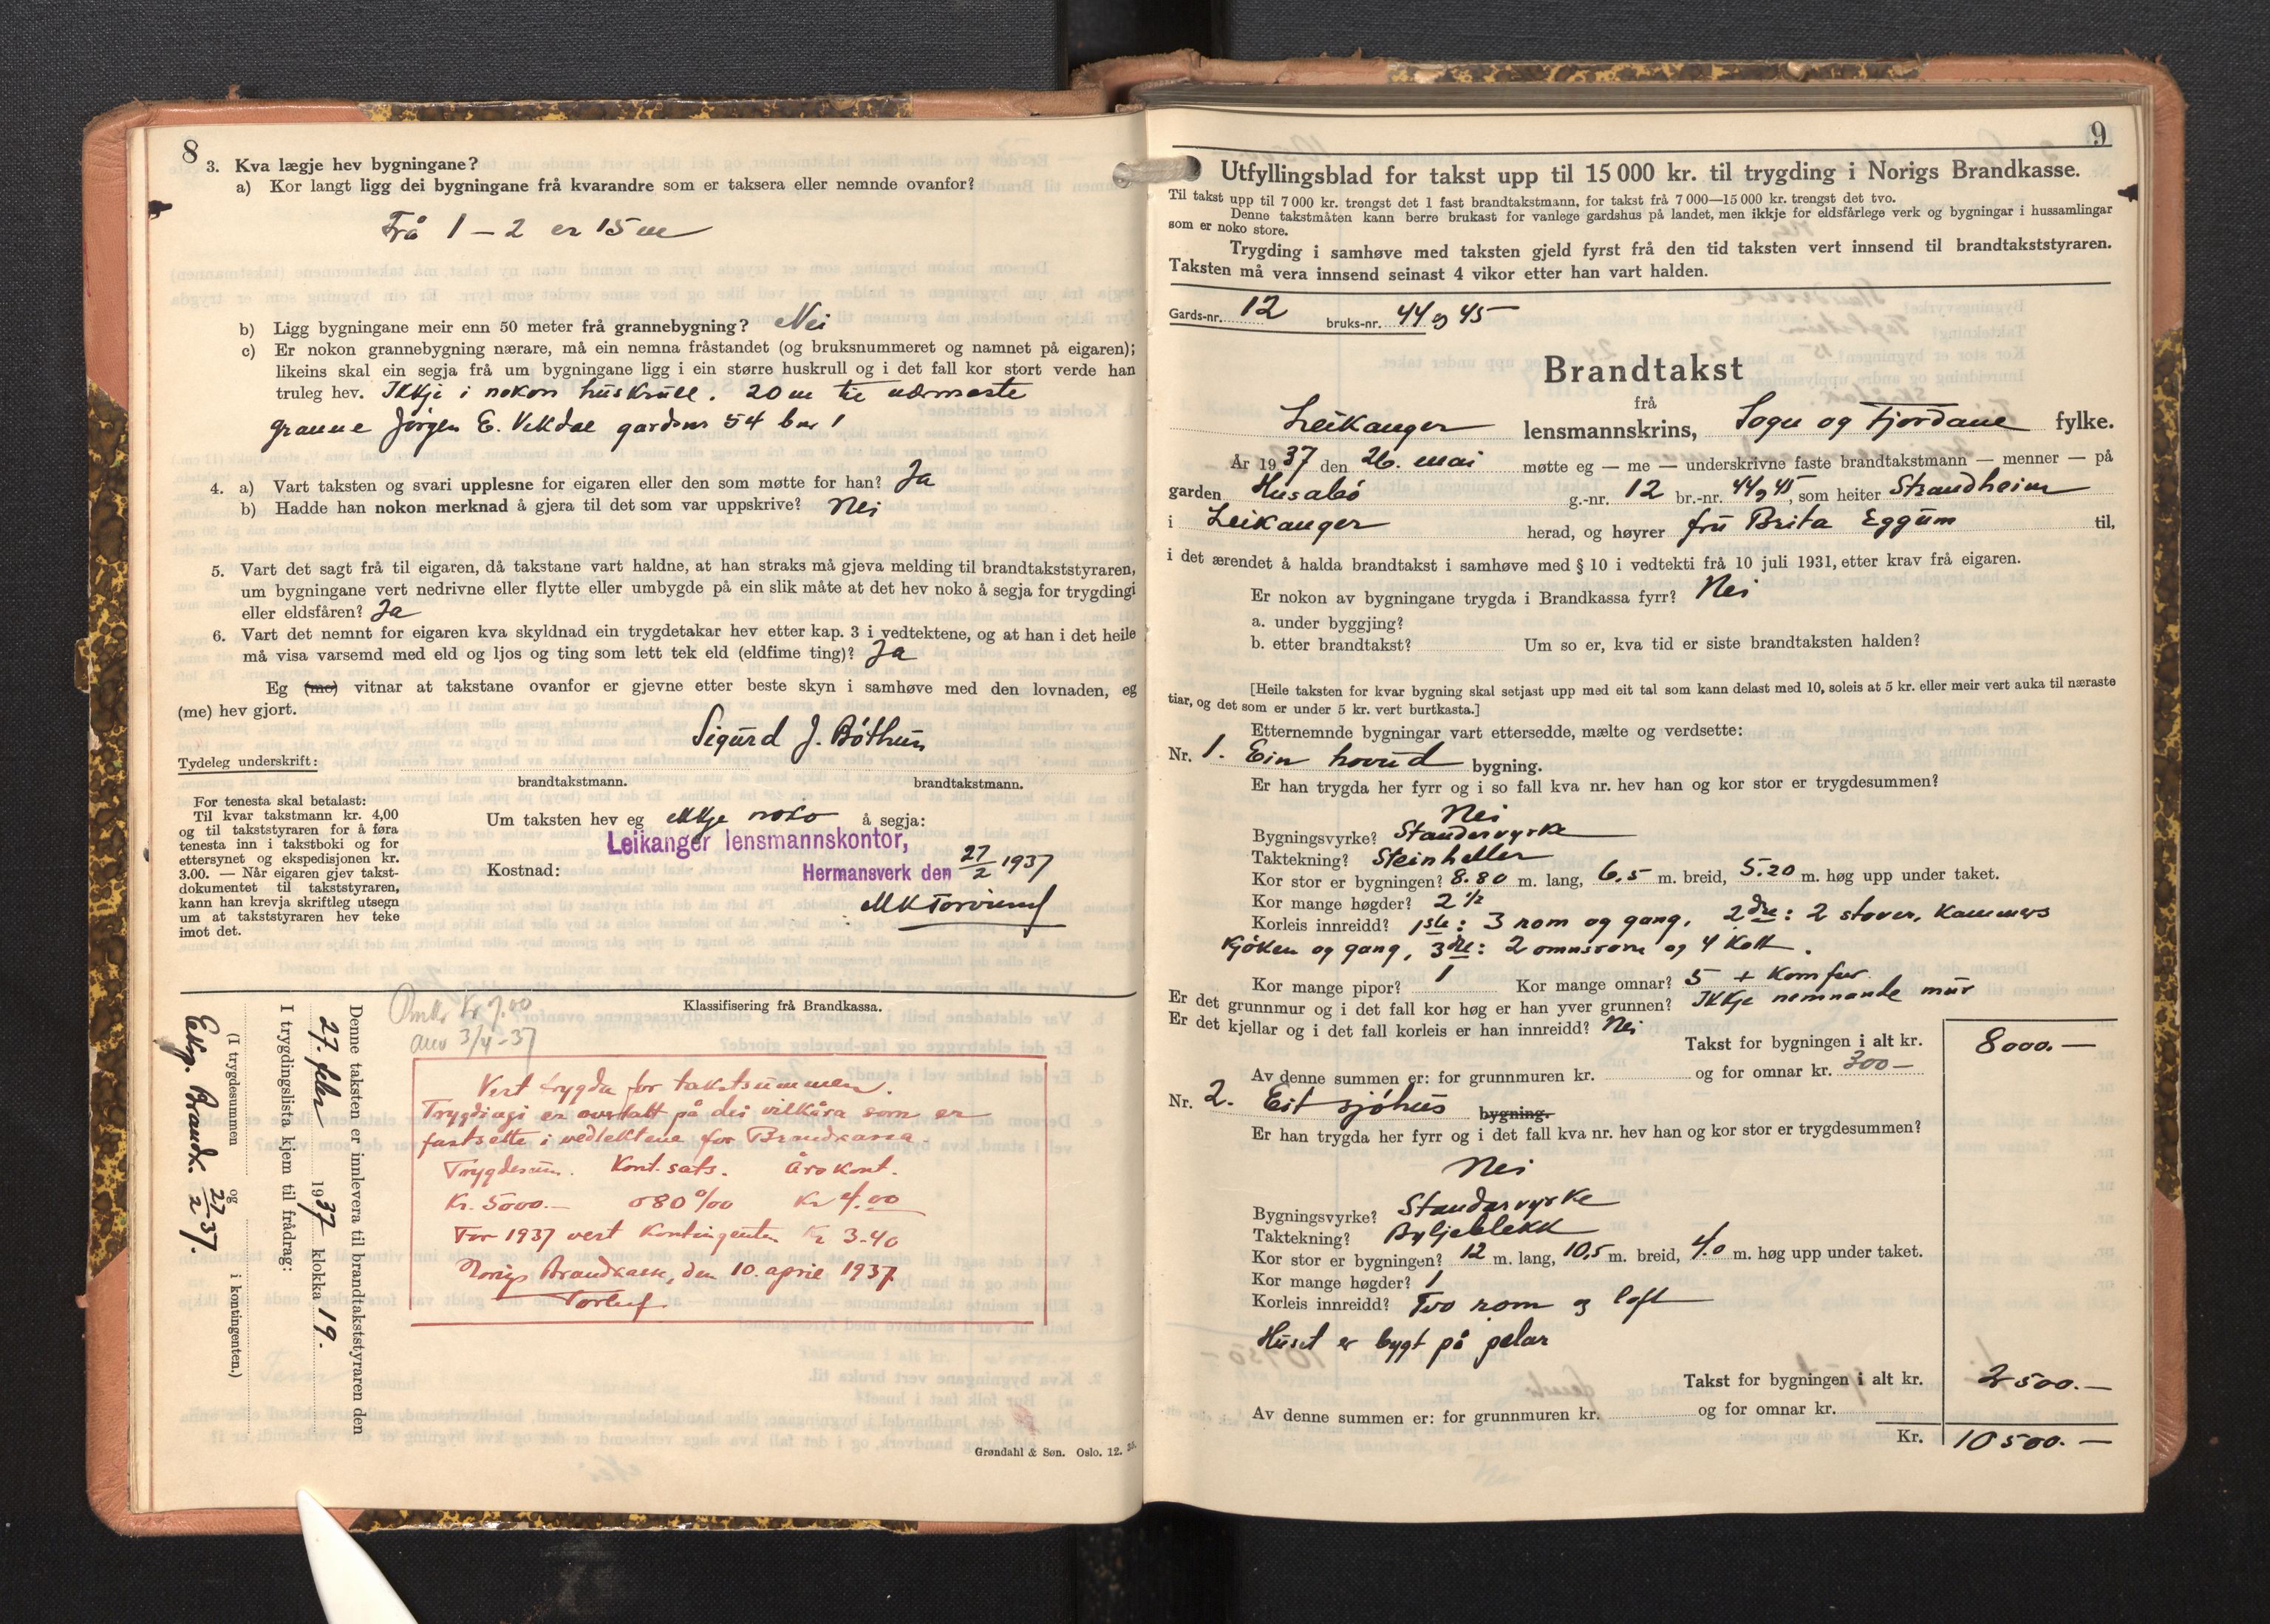 8
3. Kva lægje hev bygningane?
a) Kor langt ligg dei bygningane frå kvarandre som er taksera eller nemnde ovanfor?
Frå 1 – 2 er 15 m
b) Ligg bygningane meir enn 50 meter frå grannebygning? Nei
c) Er nokon grannebygning nærare, må ein nemna fråstandet (og bruksnummeret og namnet på eigaren);
likeins skal ein segja frå um bygningane ligg i ein større huskrull og i det fall kor stort verde han
truleg hev. Ikkje i nokon huskrull. 20 m til nærmaste
granne Jørgen E. Vikdal gardsnr 54 bnr 1
4. a) Vart taksten og svari upplesne for eigaren eller den som møtte for han? Ja
b) Hadde han nokon merknad å gjera til det som var uppskrive? Nei
5. Vart det sagt frå til eigaren, då takstane vart haldne, at han straks må gjeva melding til brandtakststyraren,
um bygningane vert nedrivne eller flytte eller umbygde på ein slik måte at det hev noko å segja for trygdingi
eller eldsfåren? Ja
6. Vart det nemnt for eigaren kva skyldnad ein trygdetakar hev etter kap. 3 i vedtektene, og at han i det heile
må visa varsemd med eld og ljos og ting som lett tek eld (eldfime ting)? Ja
Eg (me) vitnar at takstane ovanfor er gjevne etter beste skyn i samhøve med den lovnaden, eg
(me) hev gjort.
Sigurd J. Bøthun
Tydeleg underskrift:
brandtakstmann. brandtakstmann.
For tenesta skal betalast:
Til kvar takstmann kr. 4,00
og til takststyraren for å føra
tenesta inn i takstboki og for
ettersynet og ekspedisjonen kr.
3.00. — Når eigaren gjev takst-
dokumentet til takststyraren,
kann han krevja skriftleg utsegn
um at takststyraren hev teke
imot det.
Um taksten hev eg ikkje noko å segja:
Leikanger lensmannskontor,
Kostnad: Hermansverk den 27/2 1937
Klassifisering frå Brandkassa.
Kr 7.00
3/4-37
Vert trygda for takstsummen.
Trygdingi er avslatt på dei vilkåra som er
fastsette i vedtektene for Brandkassa.
Trygdesum. Kont. sats. Årskont.
Kr. 5000.— 080 ‰ Kr 4.00
For 1937 vert kontingenten Kr 3.40
Norigs Brandkasse, den 10. april 1937.
Denne taksten er innlevera til brandtakststyraren den
27. febr 1937 klokka 19.
I trygdingslista kjem til frådrag:
(I trygdesummen og i kontingenten.)
27/2 37.
Grøndahl & Søn. Oslo. 12.
9
Utfyllingsblad for takst upp til 15 000 kr. til trygding i Norigs Brandkasse.
Til takst upp til 7 000 kr. trengst det 1 fast brandtakstmann, for takst frå 7 000—15 000 kr. trengst det tvo.
Denne takstmåten kann berre brukast for vanlege gardshus på landet, men ikkje for eldsfårlege verk og bygningar i hussamlingar
som er noko store.
Trygding i samhøve med taksten gjeld fyrst frå den tid taksten vert innsend til brandtakststyraren.
Taksten må vera innsend seinast 4 vikor etter han vart halden.
Gards-nr. 12 bruks-nr. 44 og 45
Brandtakst
frå
Leikanger lensmannskrins, Sogn og Fjordane fylke.
År 1937 den 26. mai møtte eg — me — underskrivne faste brandtakstmann — menner — på
garden Husabø g.-nr. 12 br.-nr. 44 og 45, som heiter Strandheim
i Leikanger herad, og høyrer fru Brita Eggum til,
i det ærendet å halda brandtakst i samhøve med § 10 i vedtekti frå 10 juli 1931, etter krav frå eigaren.
Er nokon av bygningane trygda i Brandkassa fyrr? Nei
a. under byggjing?
b. etter brandtakst? Um so er, kva tid er siste brandtaksten halden?
[Heile taksten for kvar bygning skal setjast upp med eit tal som kann delast med 10, soleis at 5 kr. eller meir vert auka til næraste
tiar, og det som er under 5 kr. vert burtkasta.]
Etternemnde bygningar vart ettersedde, mælte og verdsette:
Nr. 1. Ein hovud bygning.
Er han trygda her fyrr og i so fall kva nr. hev han og kor stor er trygdesummen?
Nei
Bygningsvyrke? Standarvyrke
Taktekning? Steinheller
Kor stor er bygningen? 8.80 m. lang, 6.5 m. breid, 5.20 m. høg upp under taket.
Kor mange høgder? 2 ½
Korleis innreidd? 1ste: 3 rom og gang, 2dre: 2 stover, kammers
kjøken og gang, 3dje: 2 omnsrom og 4 kott.
Kor mange pipor? 1 Kor mange omnar? 5 + komfur.
Er det grunnmur og i det fall kor høg er han yver grunnen? Ikkje nemnande mur
Er det kjellar og i det fall korleis er han innreidd? Nei
Takst for bygningen i alt kr. 8000.—
Av denne summen er: for grunnmuren kr. og for omnar kr. 300—
Nr. 2. Eit sjøhus bygning.
Er han trygda her fyrr og i det fall kva nr. hev han og kor stor er trygdesummen?
Nei
Bygningsvyrke? Standarvyrke
Taktekning? Bylgjeblekk
Kor stor er bygningen? 12 m. lang, 10,5 m. breid, 4.0 m. høg upp under taket.
Kor mange høgder? 1
Korleis innreidd? Two rom og loft
Huset er bygt på pelar
Takst for bygningen i alt kr. 2500.—
Av denne summen er: for grunnmuren kr. og for omnar kr.
Kr. 10500.—